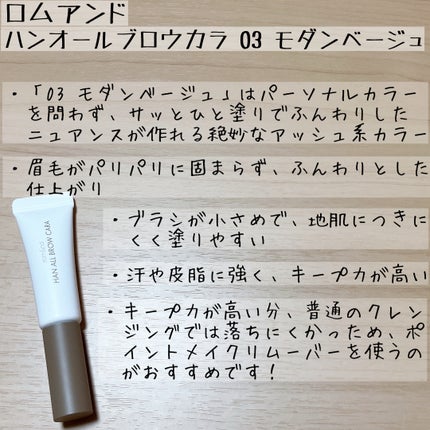 ロムアンド
ハンオールブロウカラ 03 モダンベージュ
・「03 モダンベージュ」はパーソナルカラー
を問わず、サッとひと塗りでふんわりした
ニュアンスが作れる絶妙なアッシュ系カラー
・眉毛がパリパリに固まらず、ふんわりとした
仕上がり
・ブラシが小さめで、地肌につきに
くく塗りやすい
・汗や皮脂に強く、キープ力が高い
・キープ力が高い分、普通のクレン
ジングでは落ちにくかったため、ポ
イントメイクリムーバーを使うの
がおすすめです!
rom&nd
HAN ALL BROW CARA